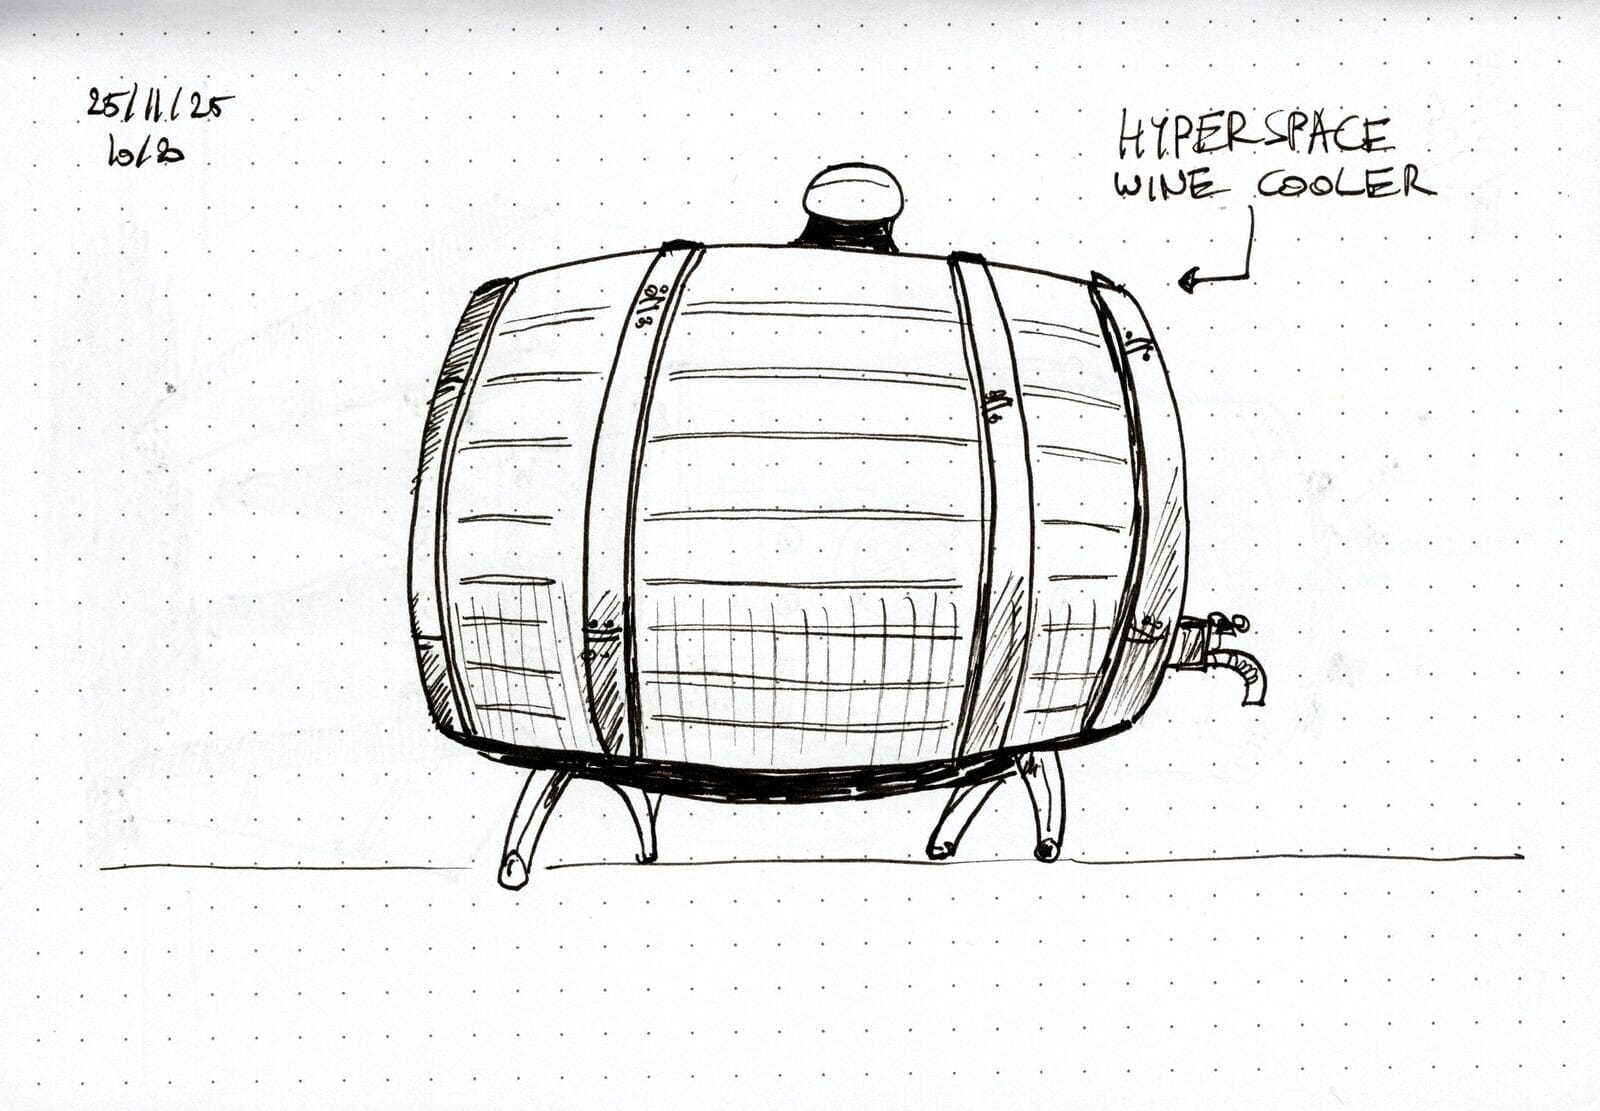 25/11/25
10/20
HYPERSPACE
WINE COOLER